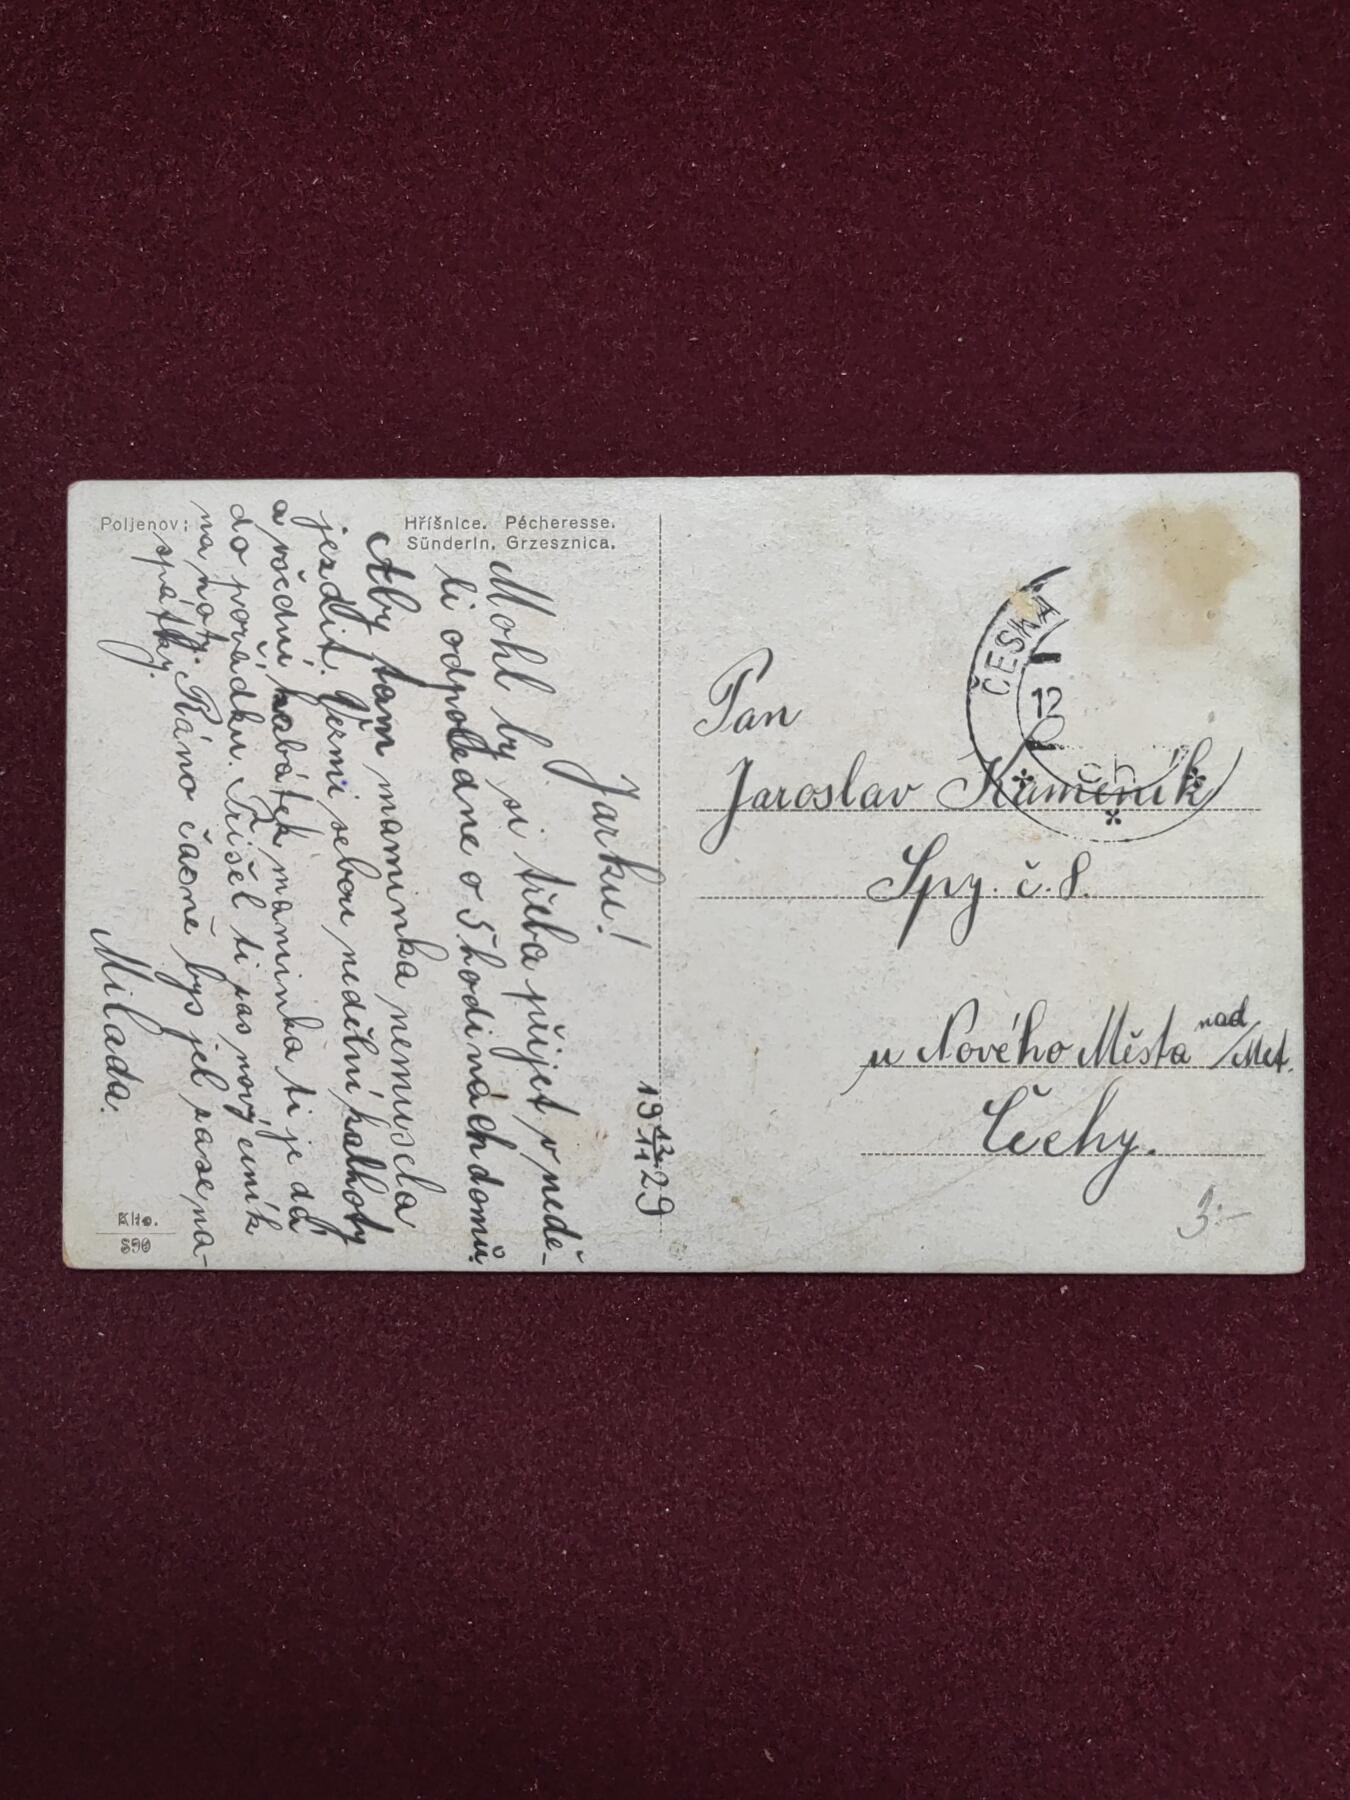 Poljenov:
Hříšnice. Pécheresse.
Sünderin. Grzesznica.
19 12/11 29
Jarku!
Mohl by si třeba přijet v nedě-
li odpoledne o 5 hodinách domů
Aby tam maminka nemusela
jezdit. Vezmi sebou nedělní kalhoty
a všední kabátek maminka ti je dá
do pořádku. Přišel ti zas nový cuník
na noty. Ráno časně bys jel zase na-
spátky.
Milada.
Klio.
590
ČESKÁ
12
ch
Pan
Jaroslav Kameník
Spy. č. 8.
u Nového Města nad/Met.
Čechy.
3.-